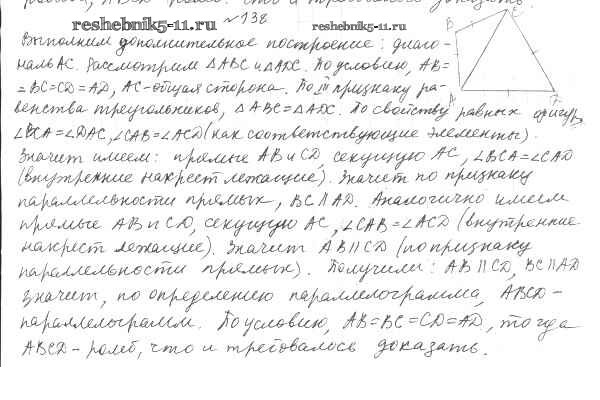 reshebnik5-11.ru
№ 138
reshebnik5-11.ru
Выполним дополнительное построение: диаго-
наль AC. Рассмотрим △ABC и △ADC. По условию, AB=
=BC=CD=AD, AC-общая сторона. По III признаку ра-
венства треугольников, △ABC=△ADC. По свойству равных фигур,
∠BCA=∠DAC, ∠CAB=∠ACD (как соответствующие элементы).
Значит имеем: прямые AB и CD, секущую AC, ∠BCA=∠CAD
(внутренние накрест лежащие). Значит по признаку
параллельности прямых, BC||AD. Аналогично имеем
прямые AB и CD, секущую AC, ∠CAB=∠ACD (внутренние
накрест лежащие). Значит AB||CD (по признаку
параллельности прямых). Получили: AB||CD, BC||AD
Значит, по определению параллелограмма, ABCD-
параллелограмм. По условию, AB=BC=CD=AD, тогда
ABCD-ромб, что и требовалось доказать.
B
A